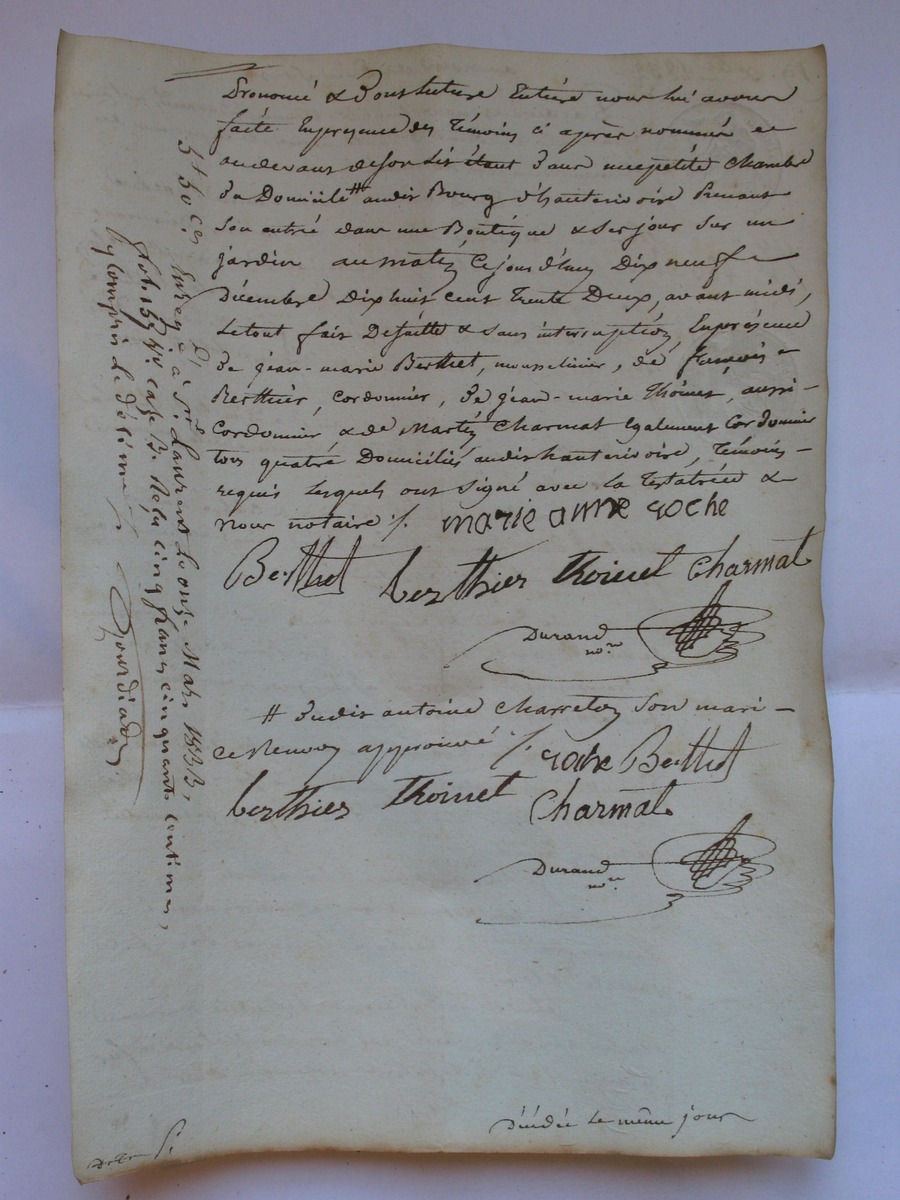 Prononcé & Dont lecture Entière nous lui avons
faite En présence des Témoins ci après nommés et
au devant de son Lit étant dans une petite Chambre
Du Domicile # audit Bourg d'hauterivoire Prenant
Son entrée dans une Boutique & ses jour sur un
jardin au matin, Ce jourd'huy Dix neuf
Décembre Dix huit cent trente Deux, avant midi,
Le tout fait De suitte & sans interruption, En présence
De jean-marie Berthet, mousselinier, de francois
Berthier, Cordonnier, De jean-marie Thoinet, aussi
Cordonnier & de Martin Charmat Egalement Cordonnier
tous quatre Domiciliés audit hauterivoire, Témoins
requis Lesquels ont signé avec la Testatrice &
Nous notaire ./. marie anne roche
Berthet berthier thoinet Charmat
Durand nore
# Dudit antoine Charreton son mari
Ce Renvoy approuvé ./. roche Berthet
berthier thoinet Charmat
Durand nore
Décédée Le même jour
5f 50ces
Enregé à St Laurent Le onze Mars 1833,
fol. 155 Vo case B. Reçu cinq francs cinquante centimes,
y compris Le décime